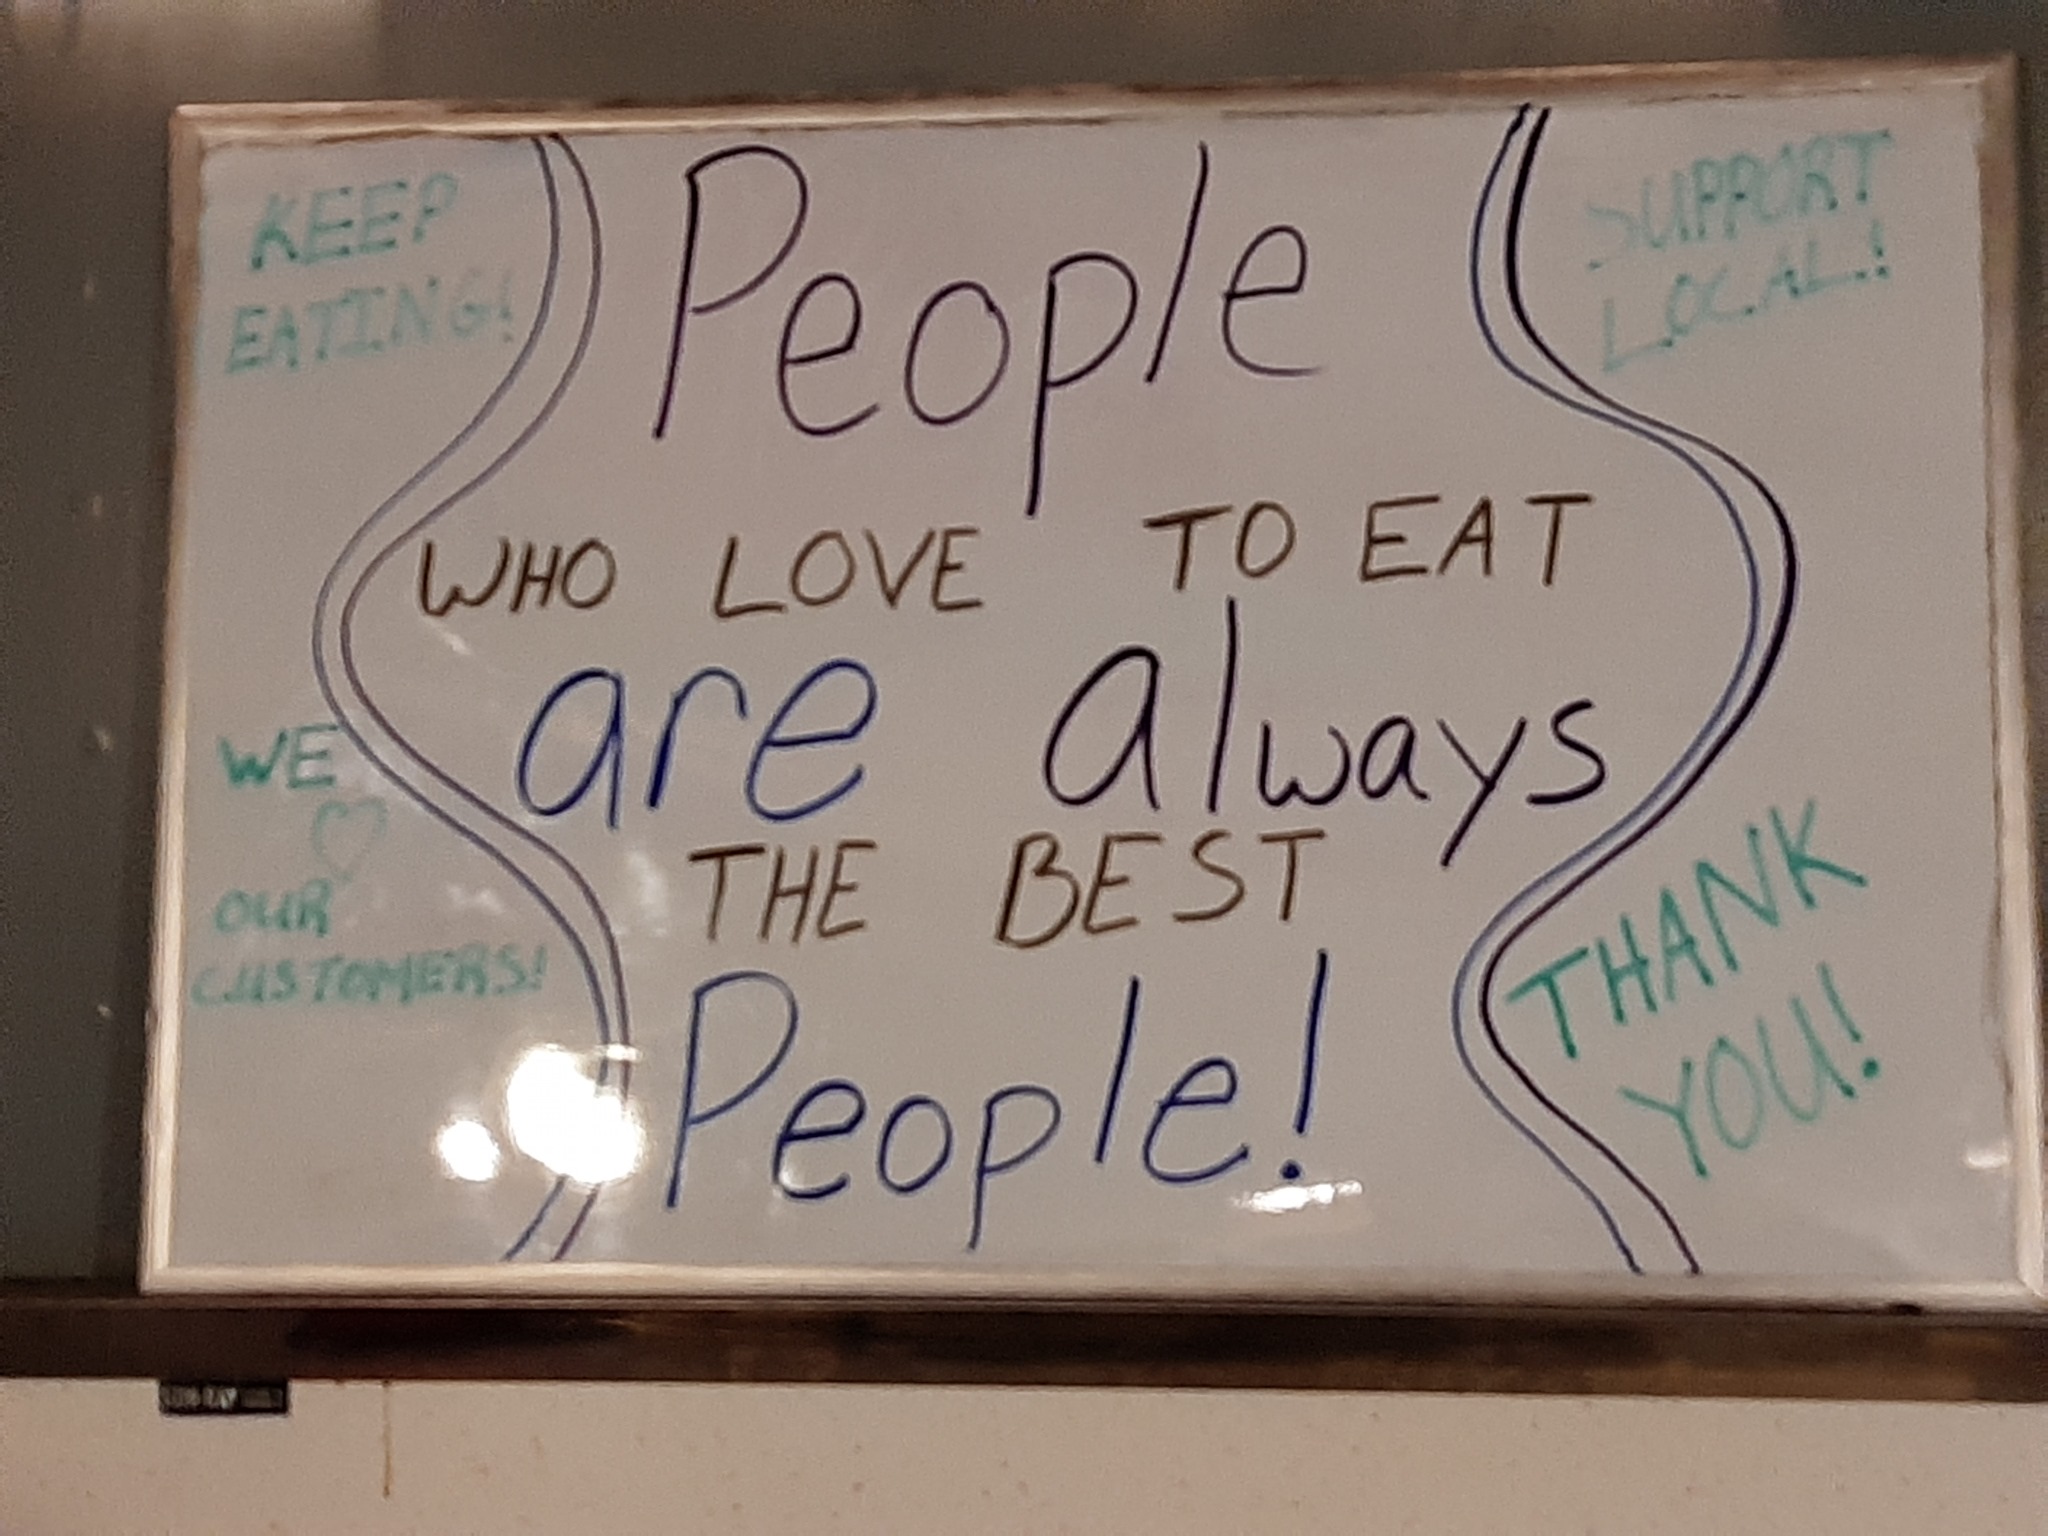 KEEP
EATING!
People
SUPPORT
LOCAL!
WHO LOVE TO EAT
are always
WE
♡
OUR
CUSTOMERS!
THE BEST
People!
THANK
YOU!